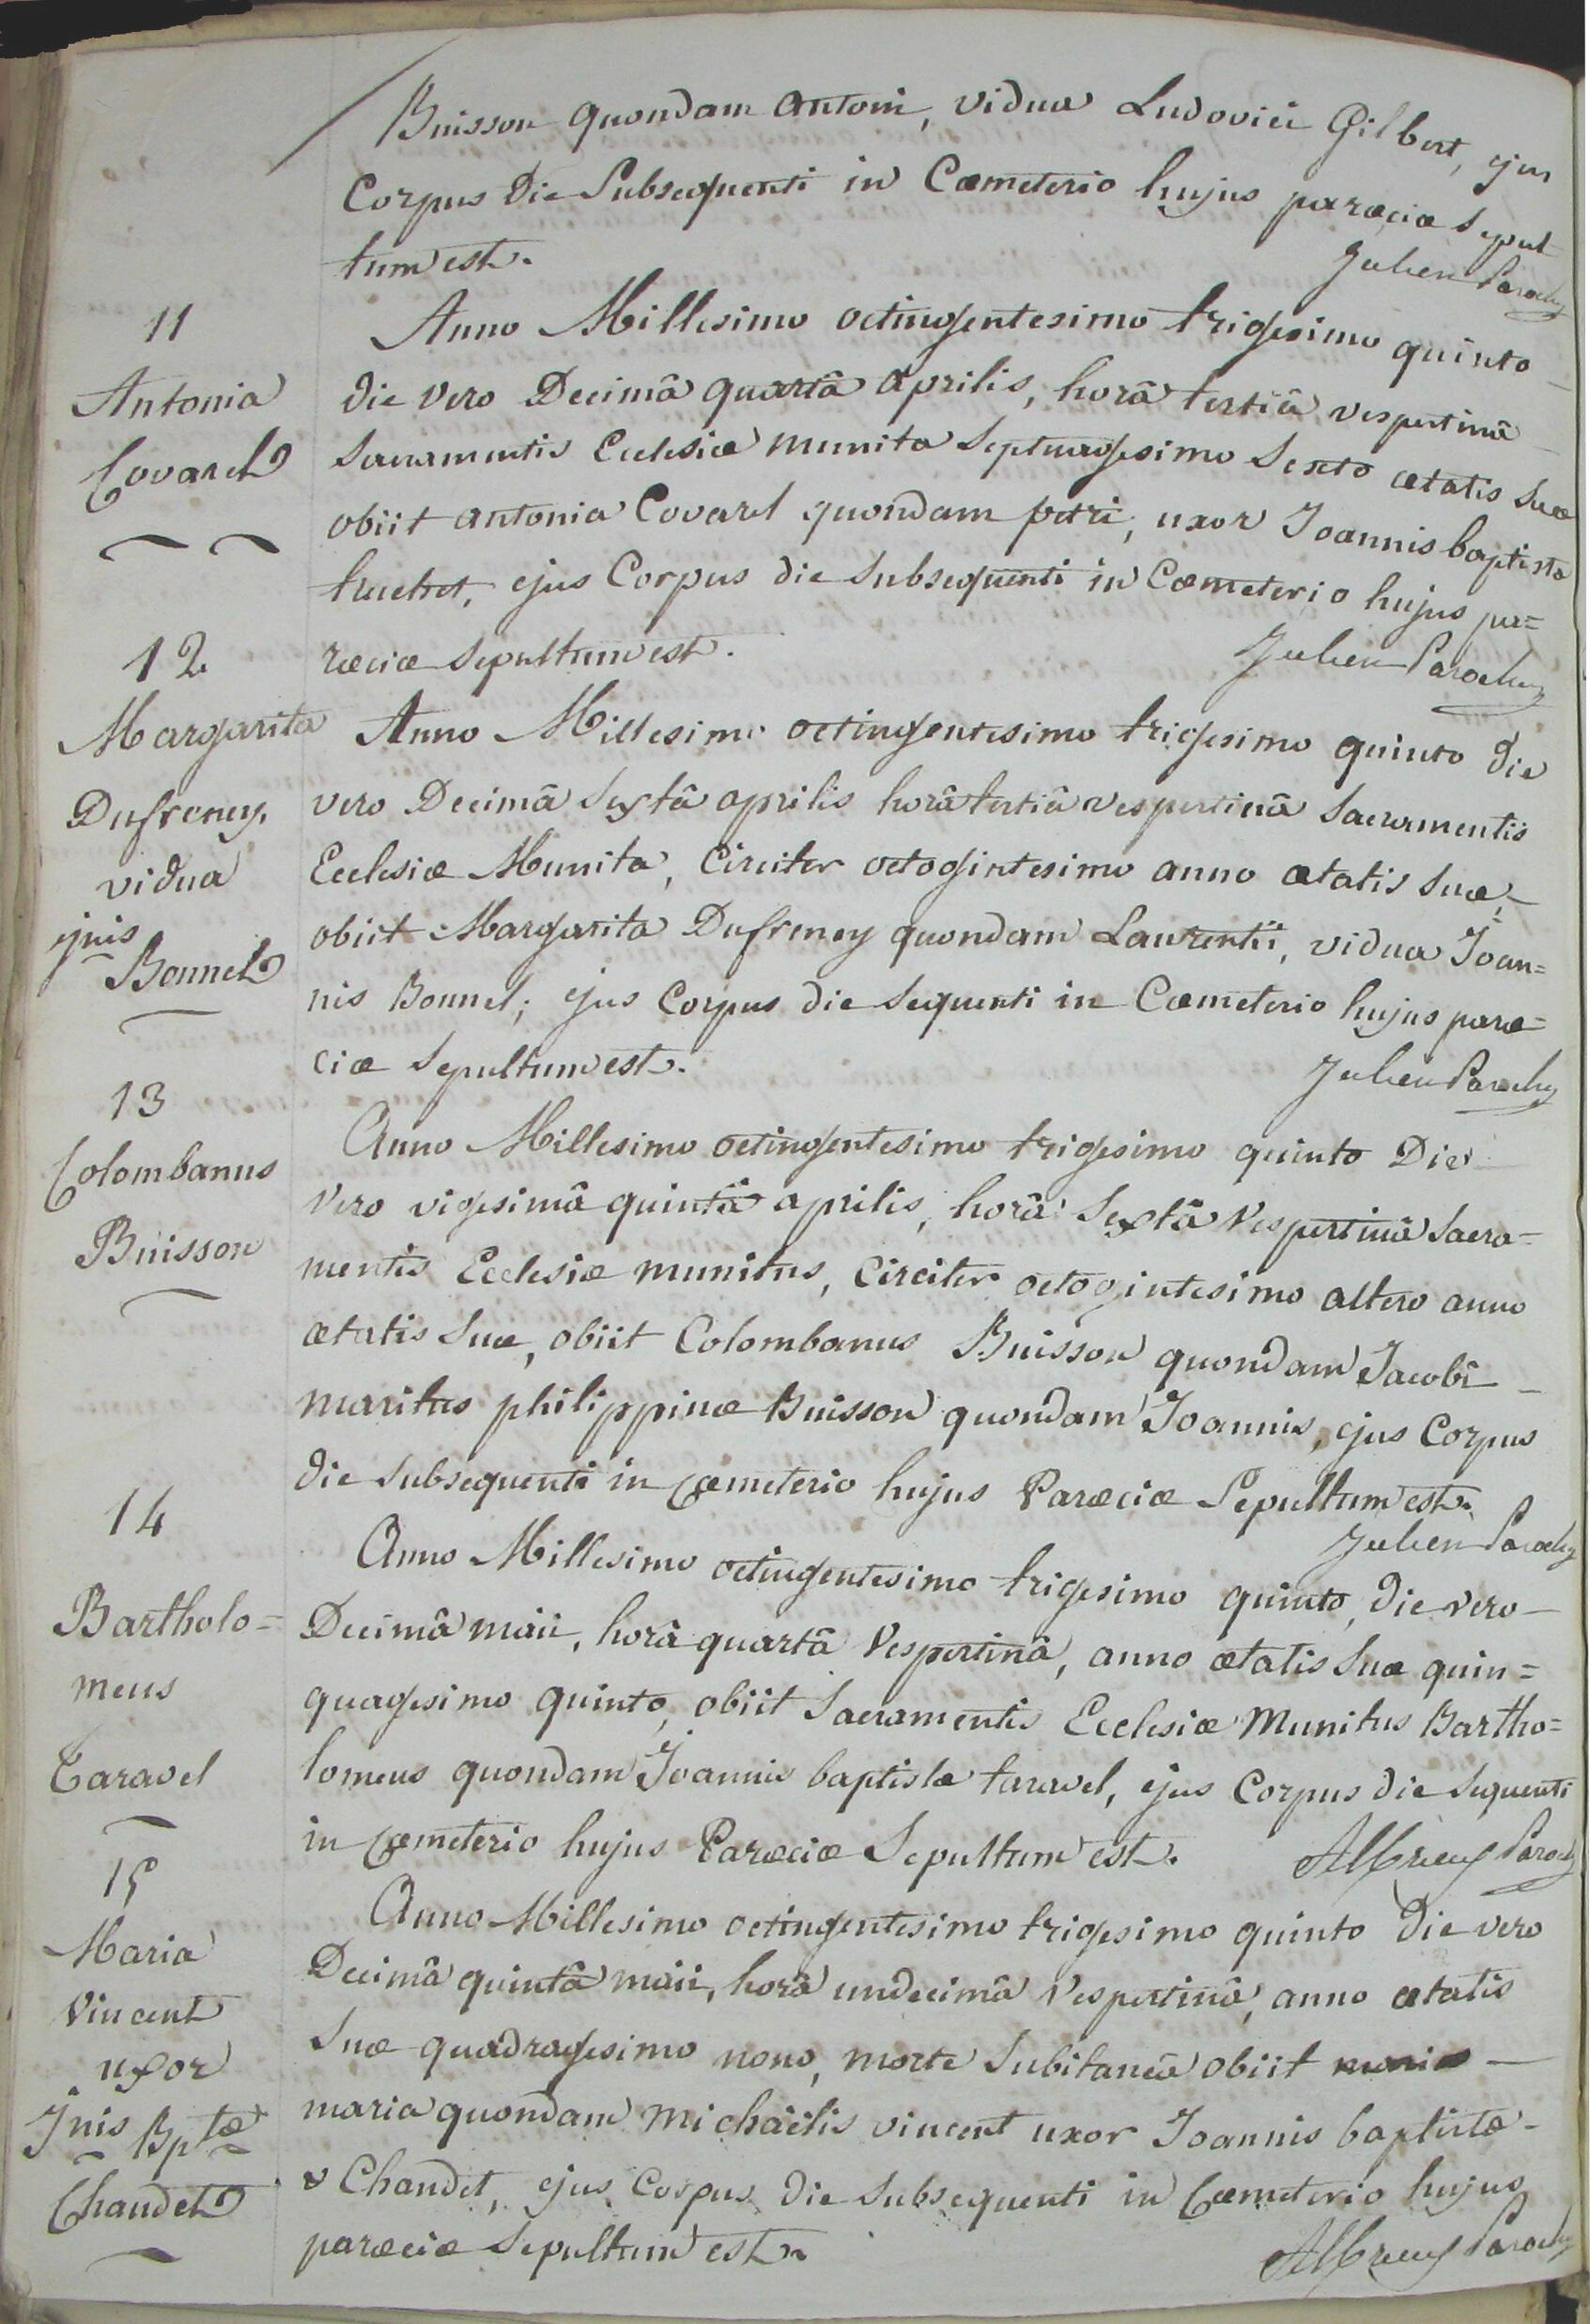 Buisson quondam antonii, vidua Ludovici Gilbert, ejus
Corpus die Subsequenti in Cœmeterio hujus parœciæ Sepul
tum est.
Julien Parochus
11
Antonia
Covarel
Anno Millesimo octingentesimo trigesimo quinto
die vero Decimâ quartâ aprilis, horâ tertiâ vespertinâ
Sacramentis Ecclesiæ munita Septuagesimo Sexto ætatis Suæ
obiit antonia Covarel quondam petri, uxor Joannis baptistæ
truchet, ejus Corpus die Subsequenti in Cœmeterio hujus pa=
rœciæ Sepultum est.
Julien Parochus
12
Margarita
Dufreney,
vidua
Bonnel
Anno Millesimo octingentesimo trigesimo quinto die
vero Decimâ Sextâ aprilis horâ tertiâ vespertinâ Sacramentis
Ecclesiæ Munita, Circiter octogintesimo anno ætatis Suæ,
obiit Margarita Dufreney quondam Laurentii, vidua Joan=
nis Bonnel; ejus Corpus die Sequenti in Cœmeterio hujus parœ=
ciæ Sepultum est.
Julien Parochus
13
Colombanus
Buisson
Anno Millesimo octingentesimo trigesimo quinto Die
Vero vigesimâ quintâ aprilis, horâ Sextâ Vespertinâ Sacra=
mentis Ecclesiæ munitus, Circiter octogintesimo altero anno
ætatis Suæ, obiit Colombanus Buisson quondam Jacobi
maritus philippinæ Buisson quondam Joannis, ejus Corpus
die Subsequenti in Cœmeterio hujus Parœciæ Sepultum est.
Julien Parochus
14
Bartholo=
meus
Taravel
Anno Millesimo octingentesimo trigesimo quinto, die vero
Decimâ maii, horâ quartâ Vespertinâ, anno ætatis Suæ quin=
quagesimo quinto, obiit Sacramentis Ecclesiæ Munitus Bartho=
lomeus quondam Joannis baptistæ taravel, ejus Corpus die Sequenti
in Cœmeterio hujus Parœciæ Sepultum est.
Parochus
15
Maria
Vincent
uxor
Jnis Bptæ
Chaudet
Anno Millesimo octingentesimo trigesimo quinto Die vero
Decimâ quintâ maii, horâ undecimâ Vespertinâ, anno ætatis
Suæ quadragesimo nono, morte Subitaneâ obiit
maria quondam michaëlis vincent uxor Joannis baptistæ
Chaudet, ejus Corpus die Subsequenti in Cœmeterio hujus
parœciæ Sepultum est.
Parochus